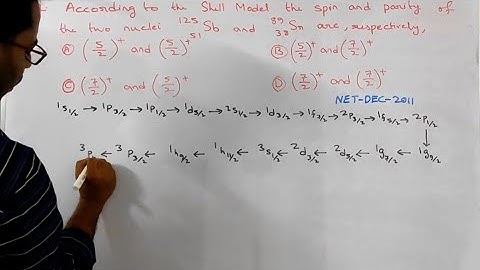 According to the Shell Model the spin and parity of
the two nuclei ¹²⁵₅₁Sb and ⁸⁹₃₈Sr are, respectively,
Ⓐ (5/2)⁺ and (5/2)⁺ Ⓑ (5/2)⁺ and (7/2)⁺
Ⓒ (7/2)⁺ and (5/2)⁺ Ⓓ (7/2)⁺ and (7/2)⁺
NET-DEC-2011
¹s₁/₂ → ¹p₃/₂ → ¹p₁/₂ → ¹d₅/₂ → ²s₁/₂ → ¹d₃/₂ → ¹f₇/₂ → ²p₃/₂ → ¹f₅/₂ → ²p₁/₂
↓
³p ← ³p₃/₂ ← ¹h₉/₂ ← ¹h₁₁/₂ ← ³s₁/₂ ← ²d₃/₂ ← ²d₅/₂ ← ¹g₇/₂ ← ¹g₉/₂